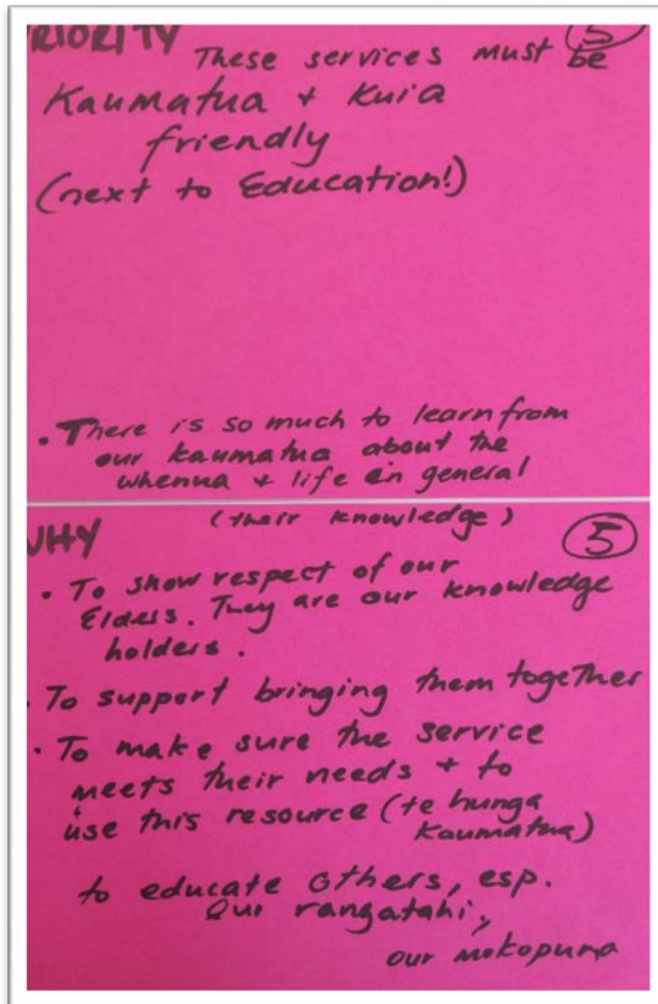 PRIORITY (5)
These services must be
Kaumatua + Kuia
friendly
(next to Education!)
• There is so much to learn from
our kaumatua about the
whenua + life in general
(their knowledge)
WHY (5)
• To show respect of our
Elders. They are our knowledge
holders.
• To support bringing them together
• To make sure the service
meets their needs + to
use this resource (te hunga
Kaumatua)
to educate others, esp.
Our rangatahi,
our mokopuna